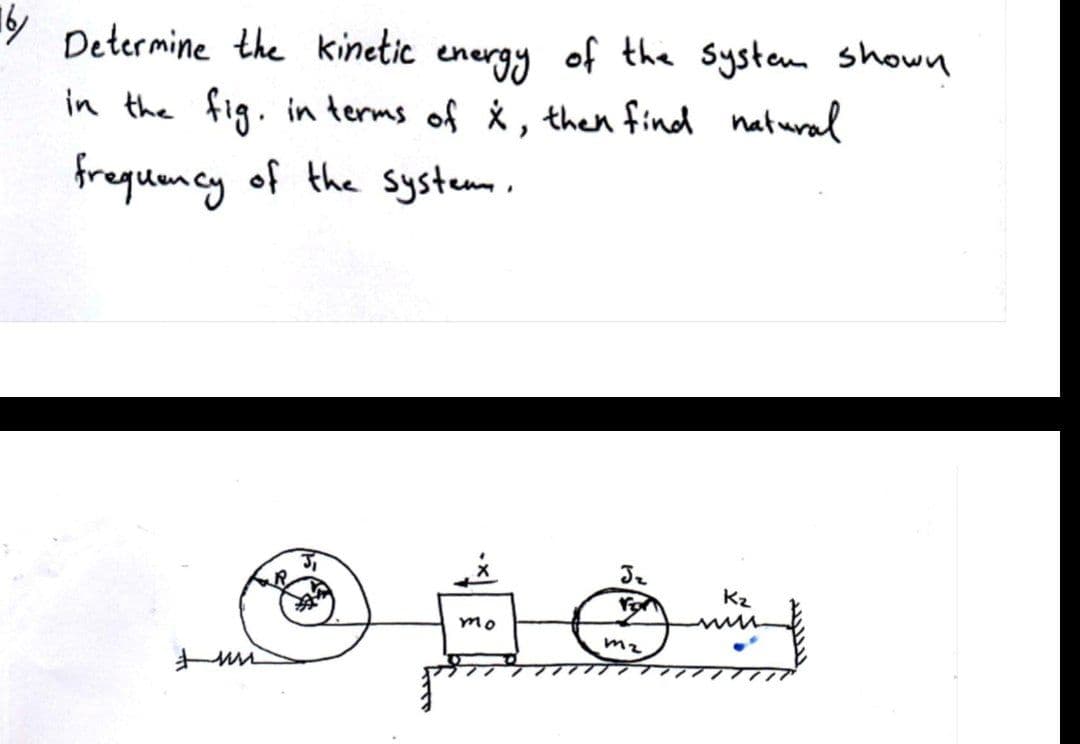 16/
Determine the kinetic energy of the system shown
in the fig. in terms of ẋ, then find natural
frequency of the system.
J₁
R
r₁
ẋ
m₀
J₂
r₂
m₂
K₂